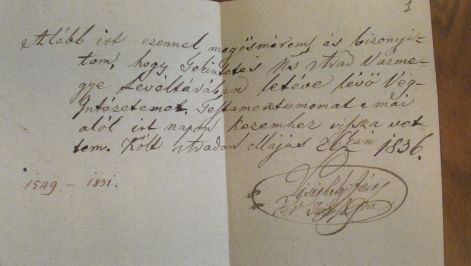 1
Alább irt ezennel megösmérem, és bizonyit-
tom, hogy Tekintetes Ns Arad Várme-
gye Levéltárában letéve lévő Vég-
Intézetemet Testamentumomat e mai
alól irt napon kezemhez vissza vet-
tem. Költ Aradon Május 26kán 1836.
1549 – 1831.